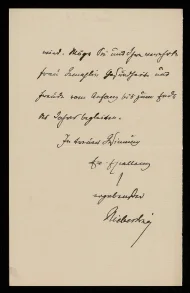 wird. Möge Sie und Ihre verehrte
Frau Gemahlin Gesundheit und
Freude vom Anfang bis zum Ende
des Jahres begleiten.
In treuer Gesinnung
Ew. Exzellenz
ergebenster